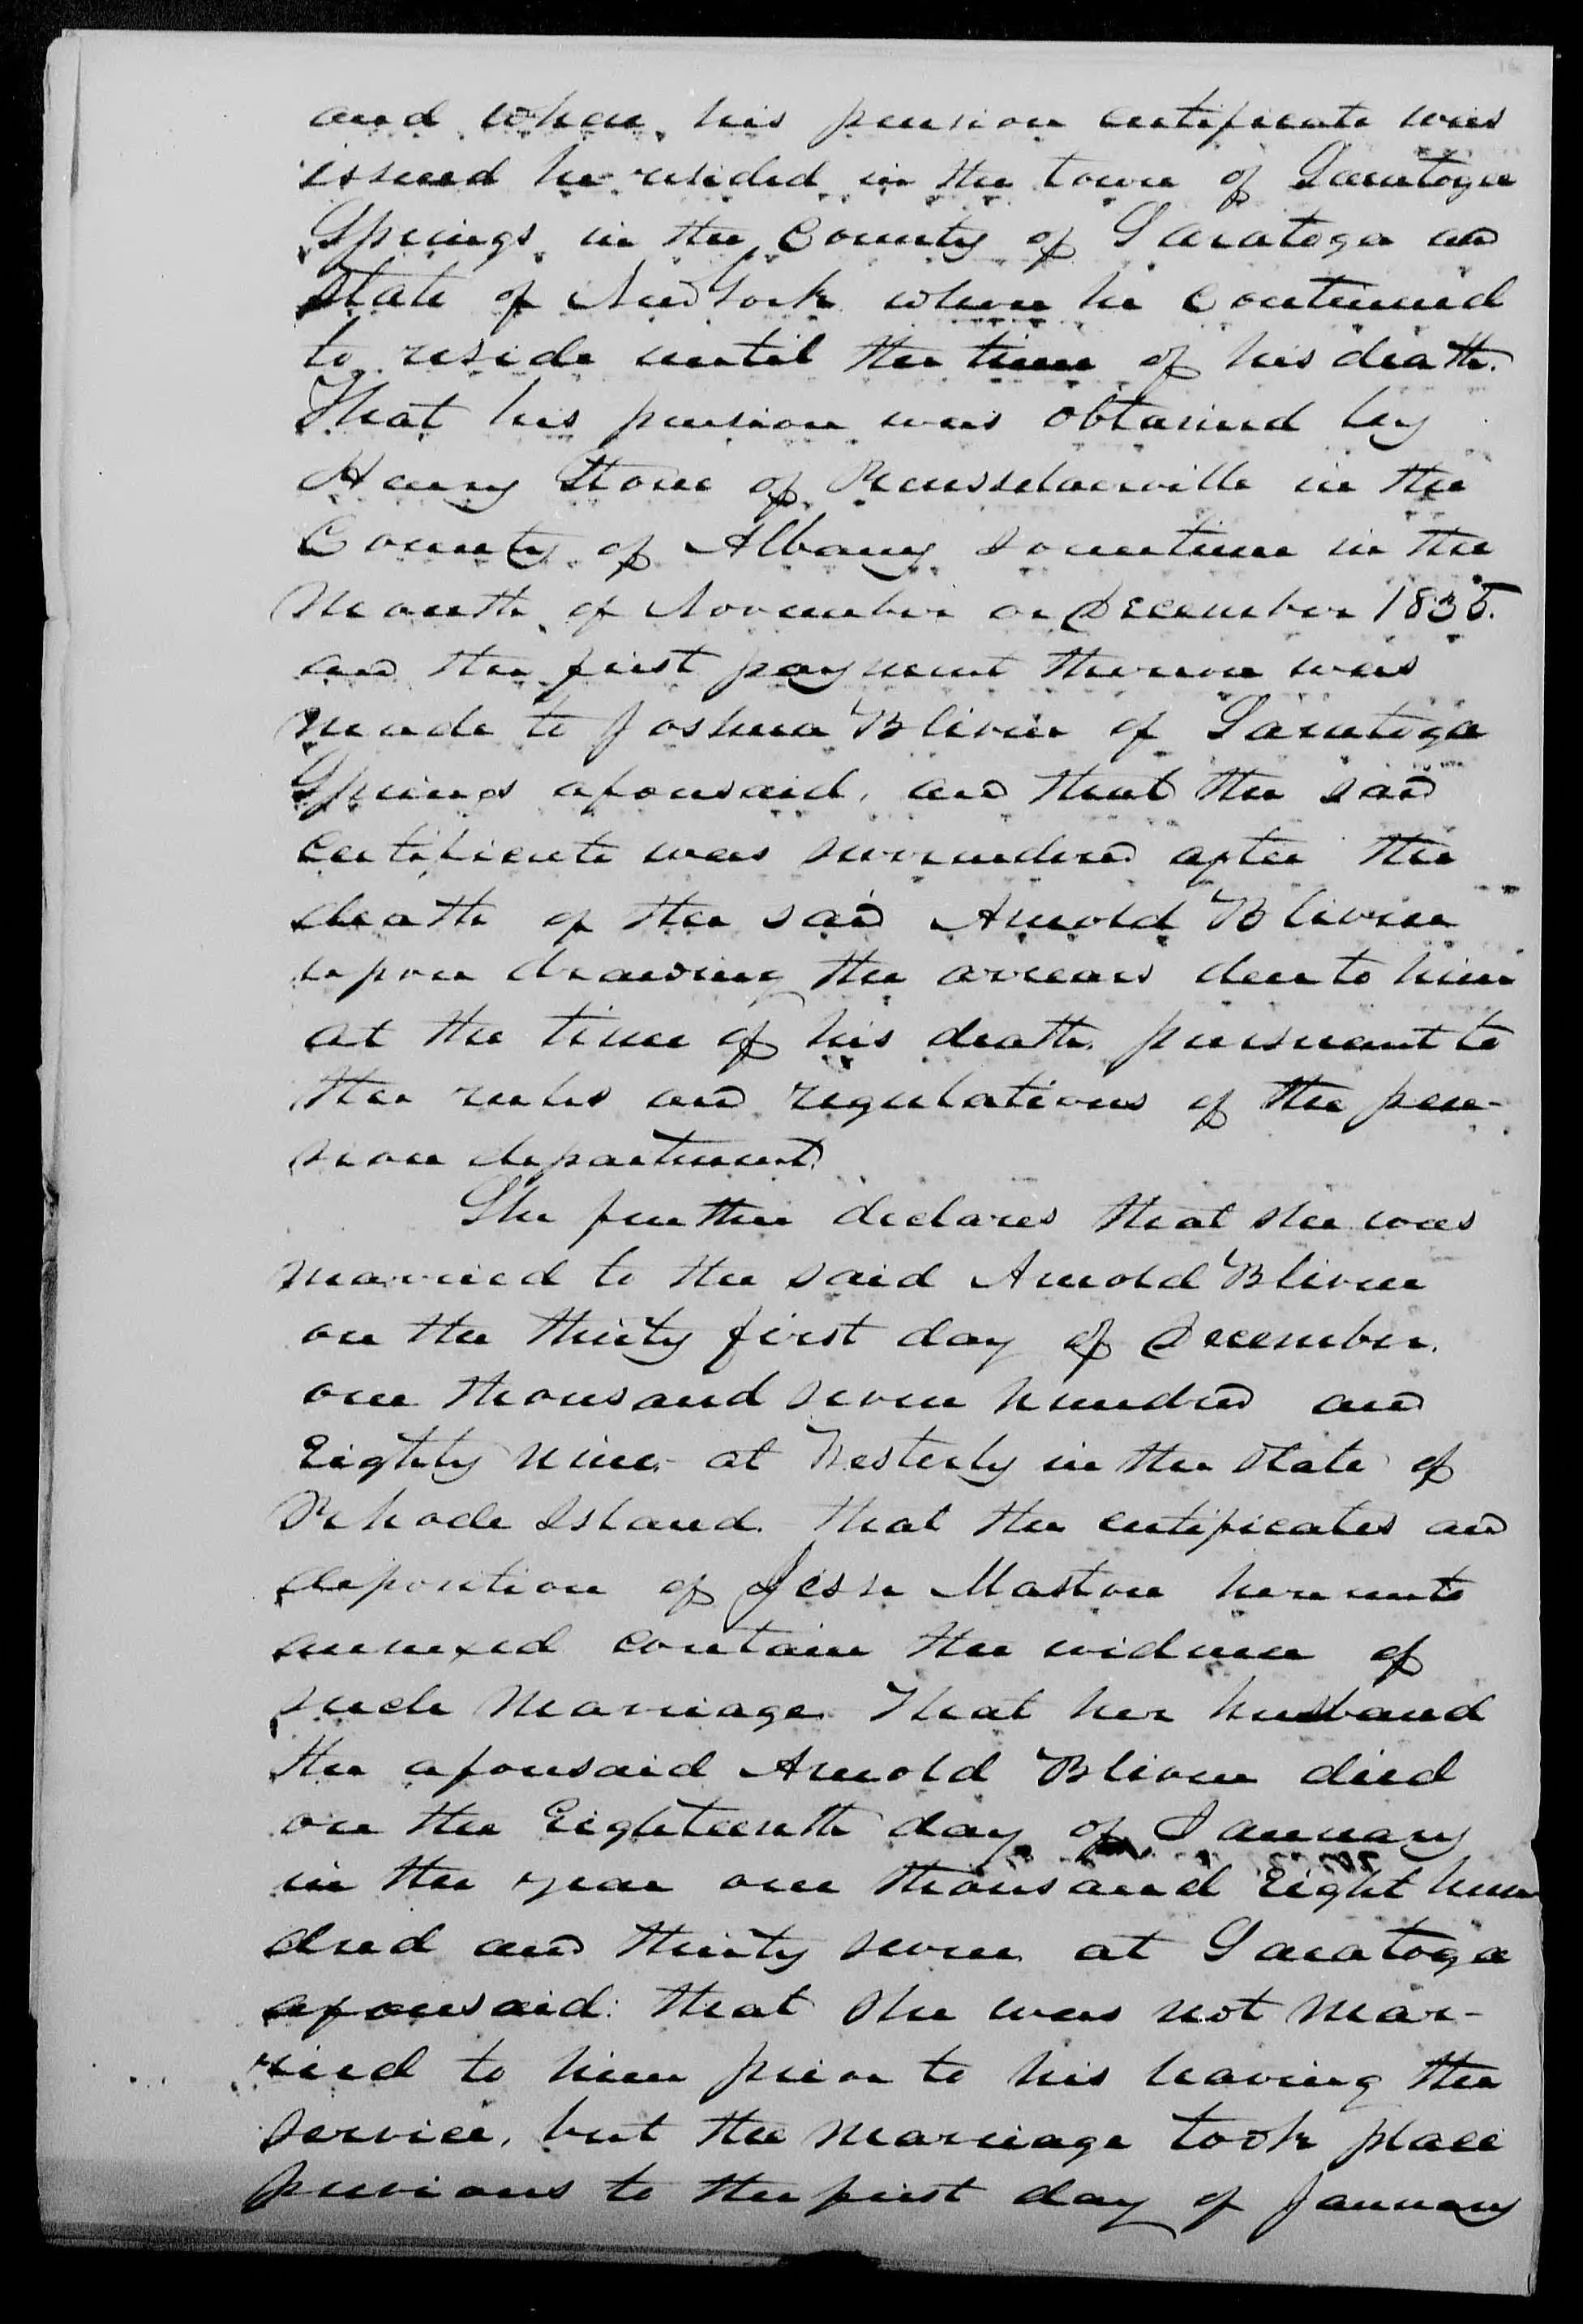 and when his pension certificate was
issued he resided in the town of Saratoga
Springs in the County of Saratoga and
State of New York where he continued
to reside until the time of his death.
That his pension was obtained by
Henry Stone of Rensselaerville in the
County of Albany sometime in the
Month of November or December 1835.
and the first payment thereon was
made to Joshua Bliven of Saratoga
Springs aforesaid, and that the said
Certificate was surrendered after the
death of the said Arnold Bliven
upon drawing the arrears due to him
at the time of his death, pursuant to
the rules and regulations of the pen-
sion department.
She further declares that she was
married to the said Arnold Bliven
on the thirty first day of December,
one thousand seven hundred and
Eighty nine, at Westerly in the State of
Rhode Island. That the certificates and
deposition of Jesse Maxson hereunto
annexed contain the evidence of
such Marriage. That her husband
the aforesaid Arnold Bliven died
on the Eighteenth day of January
in the year one thousand Eight hun
dred and thirty seven at Saratoga
aforesaid: that she was not mar-
ried to him prior to his leaving the
service, but the marriage took place
previous to the first day of January